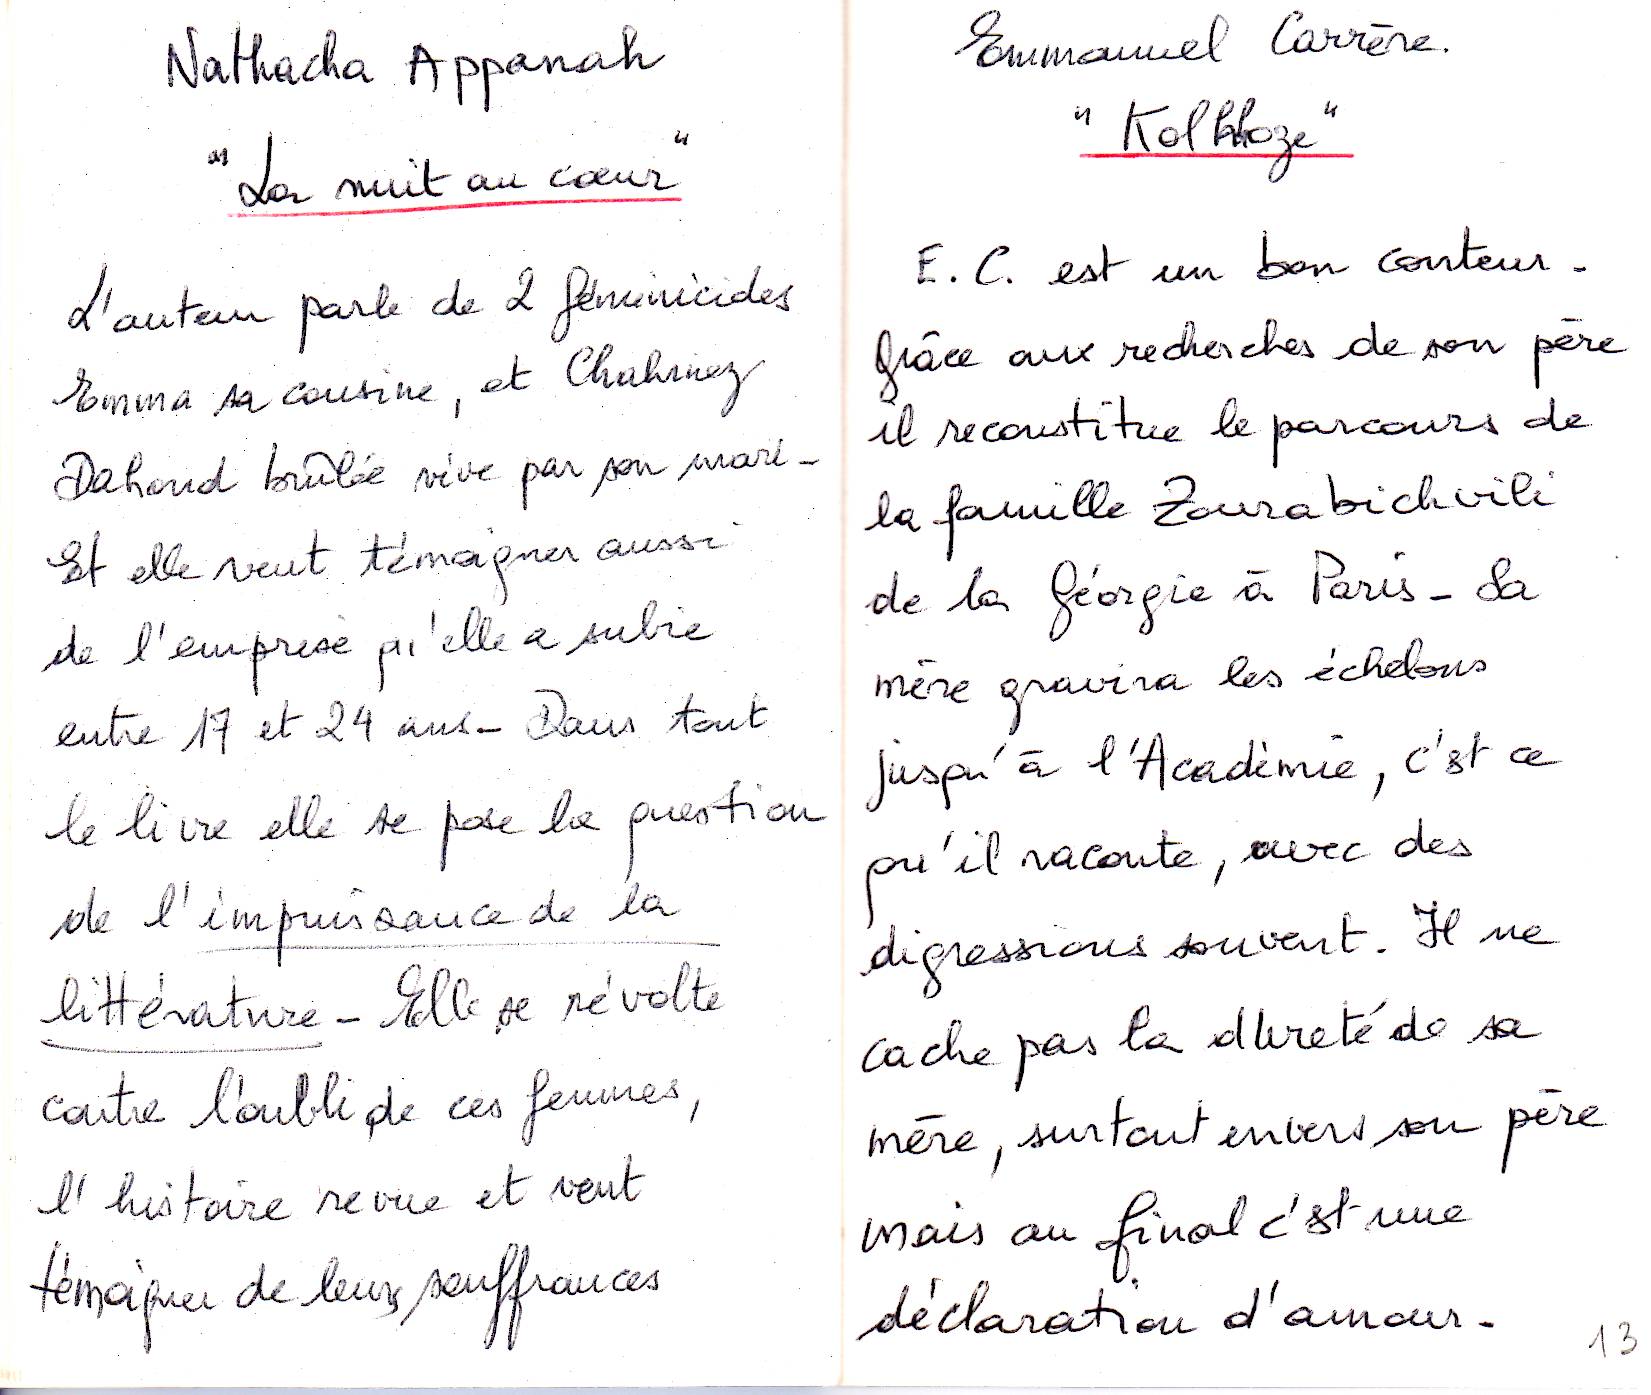 Nathacha Appanah
"La nuit au cœur"
L'auteur parle de 2 féminicides
Emma sa cousine, et Chahinez
Dahoud brûlée vive par son mari -
Et elle veut témoigner aussi
de l'emprise qu'elle a subie
entre 17 et 24 ans - Dans tout
le livre elle se pose la question
de l'impuissance de la
littérature - Elle se révolte
contre l'oubli de ces femmes,
l'histoire revue et veut
témoigner de leurs souffrances
Emmanuel Carrère.
"Kolkhoze"
E. C. est un bon conteur -
Grâce aux recherches de son père
il reconstitue le parcours de
la famille Zourabichvili
de la Géorgie à Paris - Sa
mère gravira les échelons
jusqu'à l'Académie, c'est ce
qu'il raconte, avec des
digressions souvent. Il ne
cache pas la dureté de sa
mère, surtout envers son père
mais au final c'est une
déclaration d'amour -
13